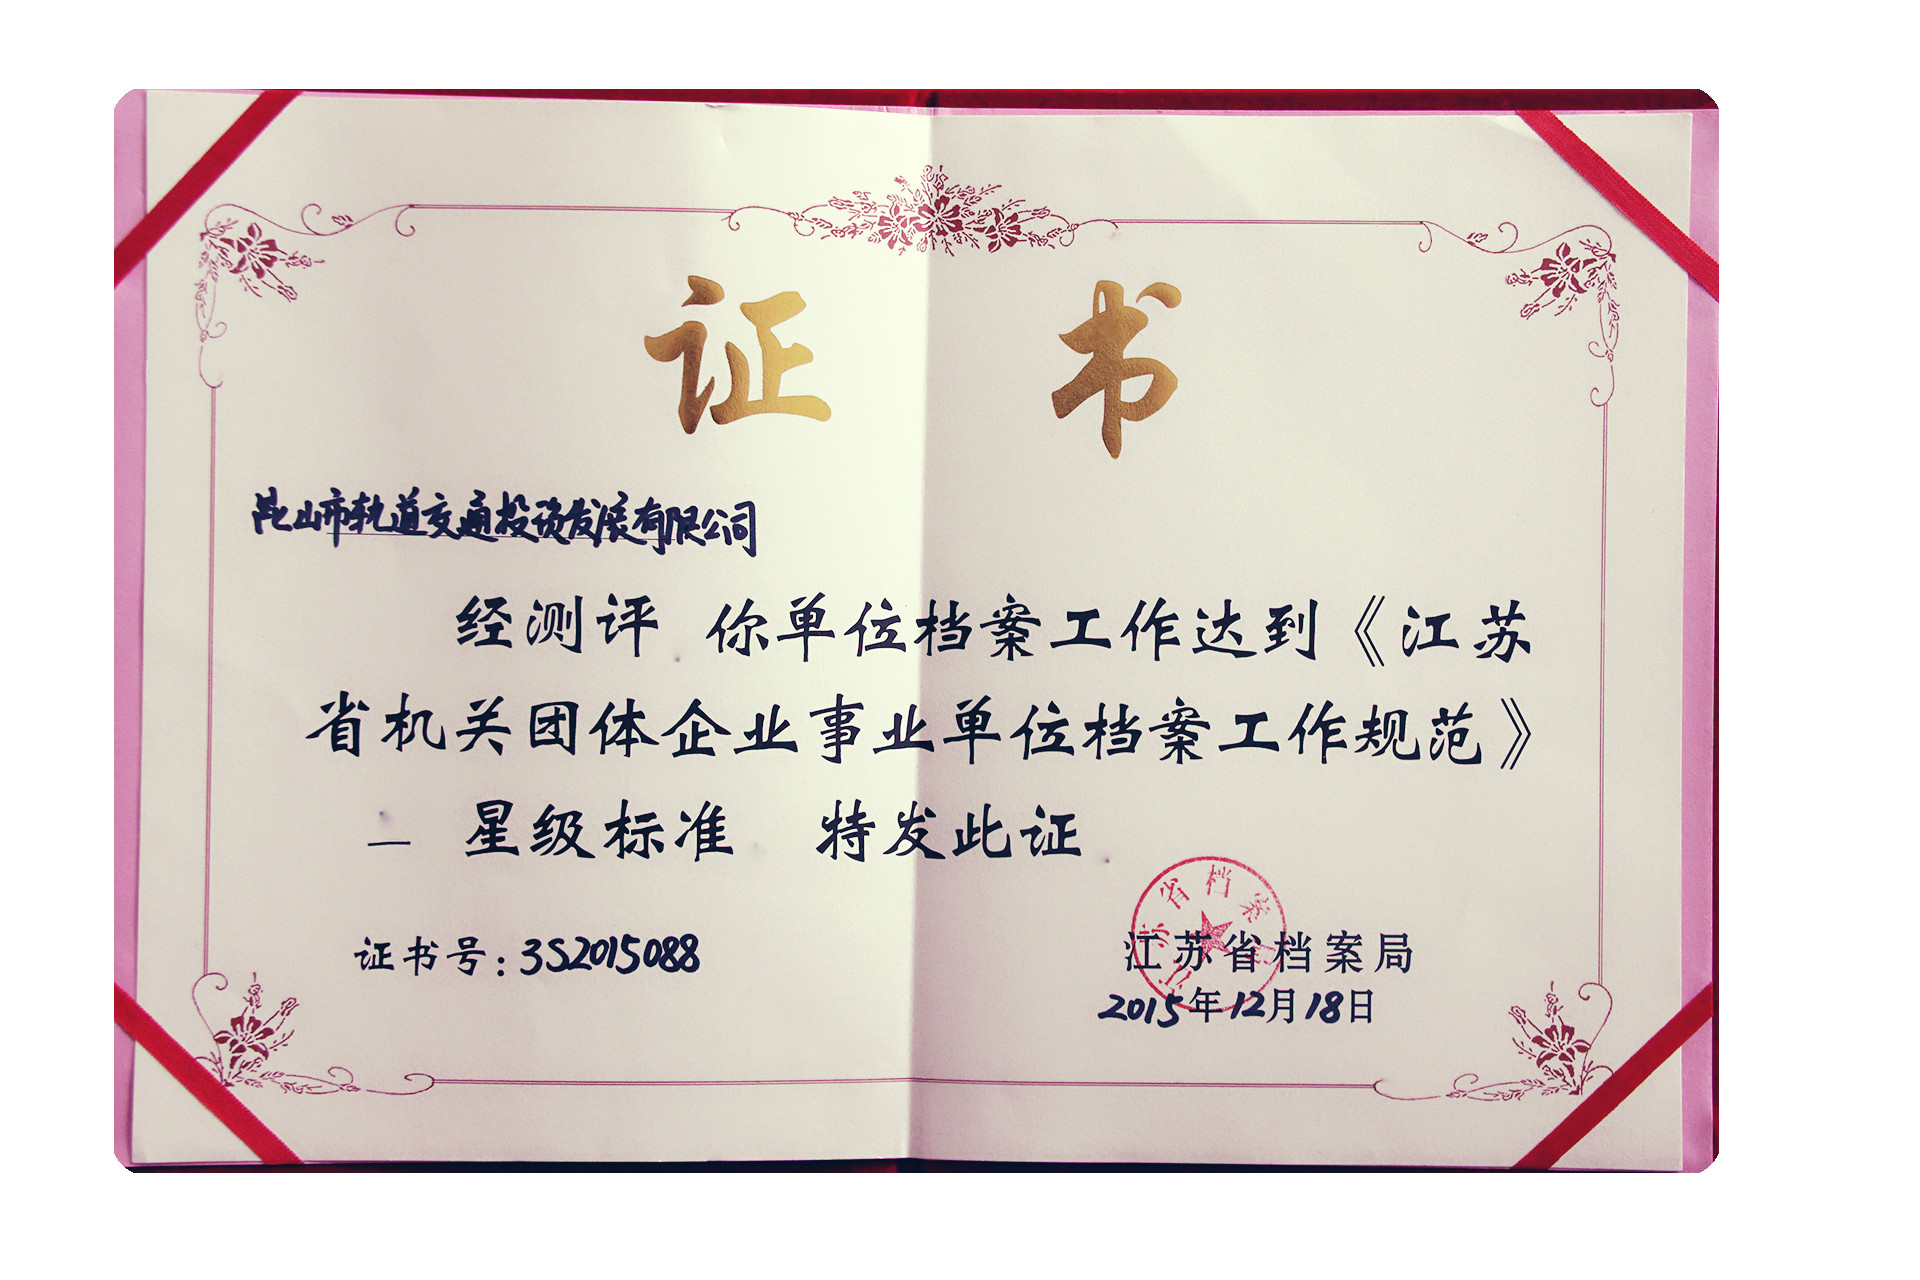 证书
昆山市轨道交通投资发展有限公司
经测评 你单位档案工作达到《江苏
省机关团体企业事业单位档案工作规范》
星级标准 特发此证
证书号：3S2015088
江苏省档案局
江苏省档案局
2015年12月18日